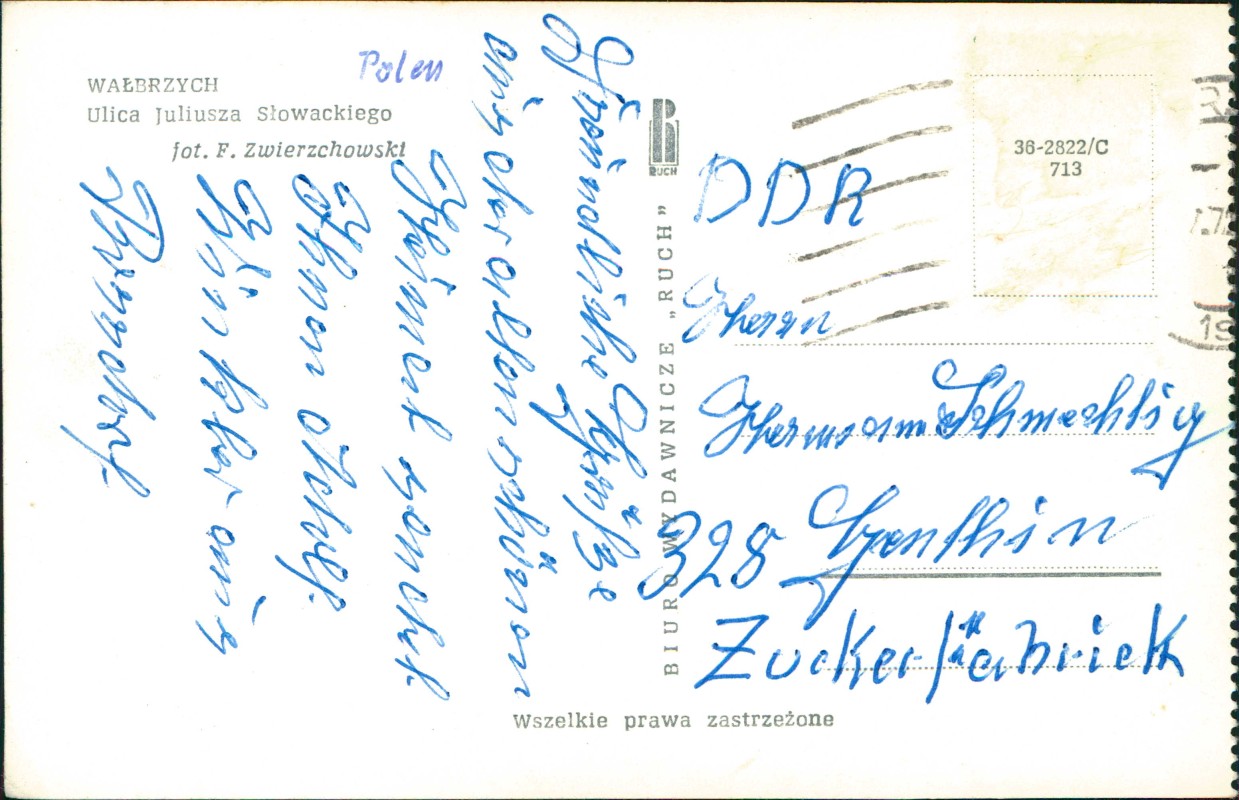 WAŁBRZYCH
Ulica Juliusza Słowackiego
fot. F. Zwierzchowski
Polen
Freundliche Grüße
aus der alten schönen
Heimat sendet
Adolf.
aus
RUCH
BIURO WYDAWNICZE „RUCH”
36-2822/C
713
DDR
Herrn
Hermann Schmechtig
328 Genthin
Zuckerfabriek
Wszelkie prawa zastrzeżone